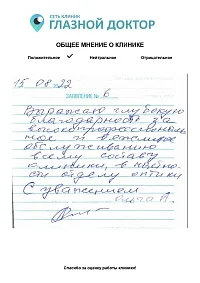 СЕТЬ КЛИНИК
ГЛАЗНОЙ ДОКТОР
ОБЩЕЕ МНЕНИЕ О КЛИНИКЕ
Положительное ✓ Нейтральное Отрицательное
15 08-22
ЗАЯВЛЕНИЕ № 6
Выражаю глубокую
благодарность за
высокопрофессиональ
ное и вежливое
обслуживанию
всему составу
клиники, в
сти отделу оптики
С уважением
Ольга
Спасибо за оценку работы клиники!